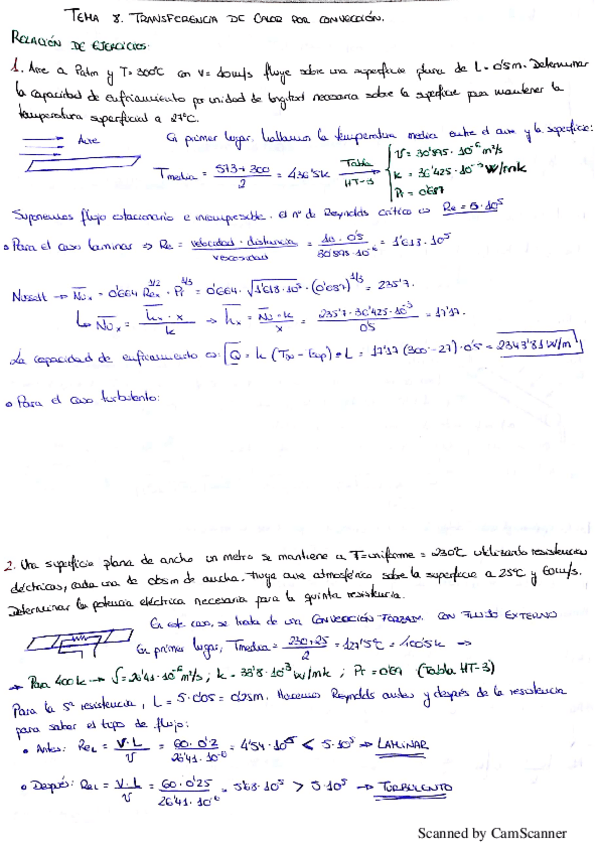 TEMA 8. TRANSFERENCIA DE CALOR POR CONVECCIÓN.
RELACIÓN DE EJERCICIOS.
1. Aire a Patm y T = 300°C con v = 10 m/s fluye sobre una superficie plana de L = 0'5m. Determinar
la capacidad de enfriamiento por unidad de longitud necesaria sobre la superficie para mantener la
temperatura superficial a 27°C.
En primer lugar, hallamos la temperatura media entre el aire y la superficie:
Aire
Tmedia = (573+300)/2 = 436'5k Tabla HT-3
ν = 30'895·10⁻⁶ m²/s
k = 36'425·10⁻³ W/mk
Pr = 0'687
Suponemos flujo estacionario e incompresible. El nº de Reynolds crítico es Re = 5·10⁵
• Para el caso laminar ⇒ Re = velocidad · distancia / viscosidad = 10·0'5 / 30'895·10⁻⁶ = 1'618·10⁵
Nusselt → Nux = 0'664 Rex^1/2 · Pr^1/3 = 0'664·√1'618·10⁵ · (0'687)^1/3 = 235'7.
↳ Nux = hx · x / k ⇒ hx = Nu·k / x = 235'7·36'425·10⁻³ / 0'5 = 17'17.
La capacidad de enfriamiento es: Q = h (T∞ - Tsup) · L = 17'17 (300-27)·0'5 = 2343'81 W/m
• Para el caso turbulento:
2. Una superficie plana de ancho un metro se mantiene a T=uniforme = 230°C utilizando resistencias
eléctricas, cada una de 0'05m de ancha. Fluye aire atmosférico sobre la superficie a 25°C y 60m/s.
Determinar la potencia eléctrica necesaria para la quinta resistencia.
En este caso, se trata de una CONVECCIÓN FORZADA CON FLUIDO EXTERNO
En primer lugar, Tmedia = (230+25)/2 = 127'5°C = 400'5k →
→ Para 400k → ν = 26'41·10⁻⁶ m²/s ; k = 33'8·10⁻³ W/mk ; Pr = 0'69 (Tabla HT-3)
Para la 5ª resistencia, L = 5·0'05 = 0'25m. Hacemos Reynolds antes y después de la resistencia
para saber el tipo de flujo:
• Antes: ReL = V·L / ν = 60·0'2 / 26'41·10⁻⁶ = 4'54·10⁵ < 5·10⁵ → LAMINAR
• Después: ReL = V·L / ν = 60·0'25 / 26'41·10⁻⁶ = 5'68·10⁵ > 5·10⁵ → TURBULENTO
Scanned by CamScanner